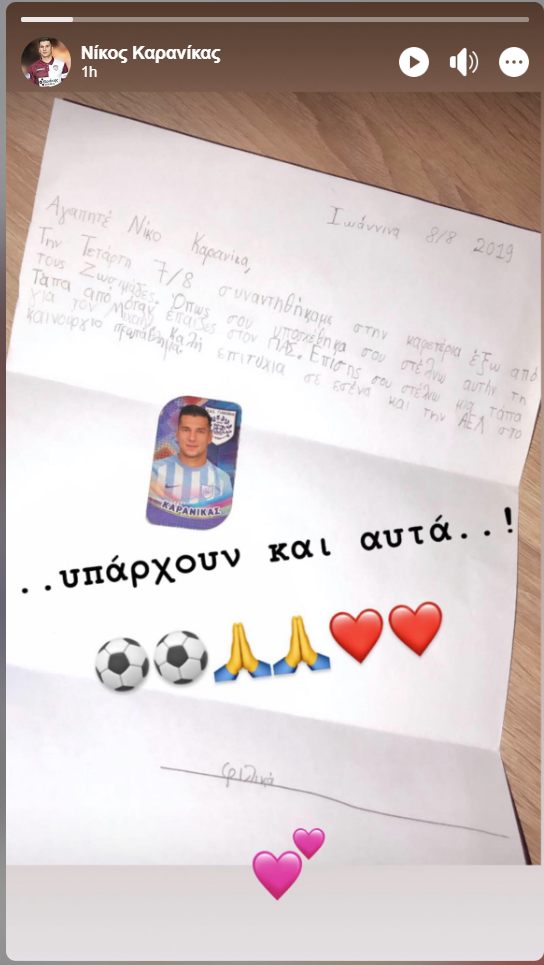 Νίκος Καρανίκας
1h
Ιωάννινα 8/8 2019
Αγαπητέ Νίκο Καρανίκα,
Την Τετάρτη 7/8 συναντηθήκαμε στην καφετέρια έξω από
τους Ζωσιμάδες. Όπως σου υποσχέθηκα σου στέλνω αυτήν τη
Τάπα από όταν έπαιζες στον ΠΑΣ. Επίσης σου στέλνω μια τάπα
για τον Καλή επιτυχία σε εσένα και την ΑΕΛ στο
καινούργιο πρωτάθλημα.
ΚΑΡΑΝΙΚΑΣ
..υπάρχουν και αυτά..!
φιλικά